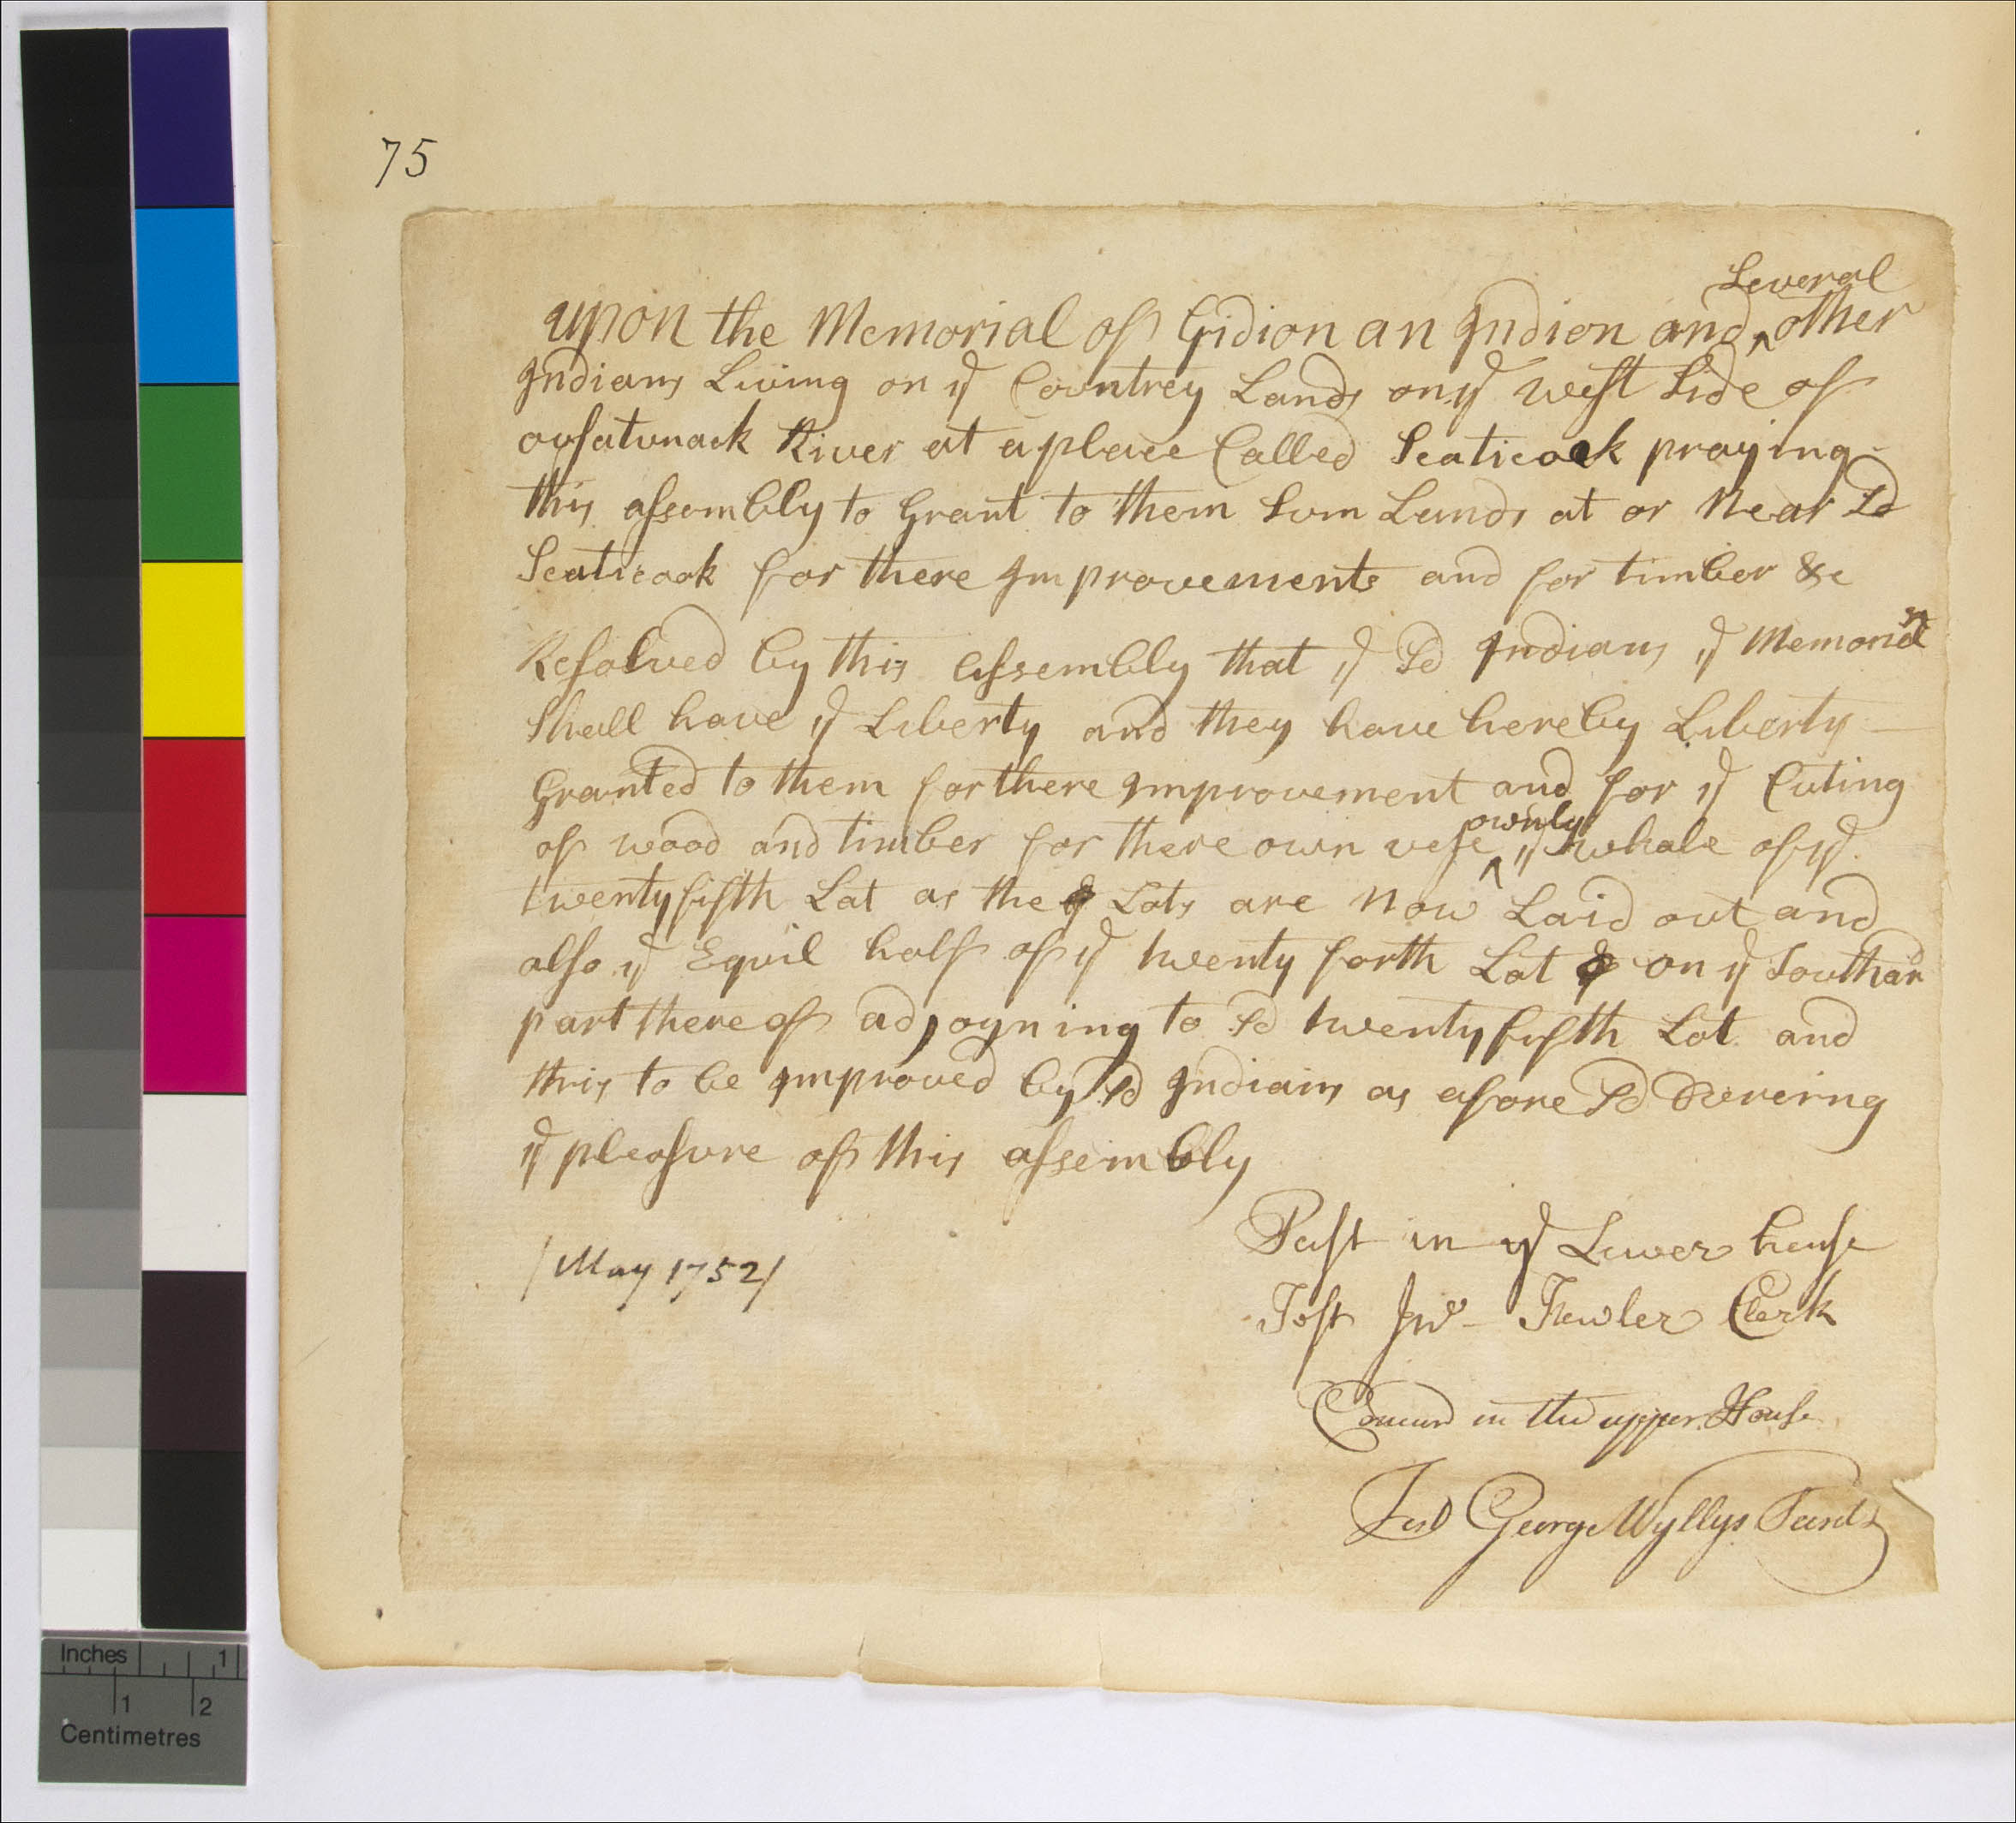 75
Several
upon the Memorial of Gidion an Indion and ^ other
Indians Living on ye Countrey Lands on ye west Side of
ousatunack River at a place Called Scaticook praying
this assembly to Grant to them Sum Lands at or Near Sd
Scaticook for there Improvements and for timber &c
Resolved by this assembly that ye Sd Indians ye Memorists
Shall have ye Liberty and they have hereby Liberty
Granted to them for there Improvement and for ye Cuting
ownly
of wood and timber for there own use ^ ye whole of ye
twenty fifth Lot as the Lots are Now Laid out and
also ye Equil half of ye twenty forth Lot on ye Southard
part there of adjoyning to Sd twenty fifth Lot and
this to be Improved by Sd Indians as afore Sd Dureing
ye pleasure of this assembly
Past in ye Lower house
/May 1752/
Test Jno Fowler Clerk
Concurd in the upper House
Test George Wyllys Secret